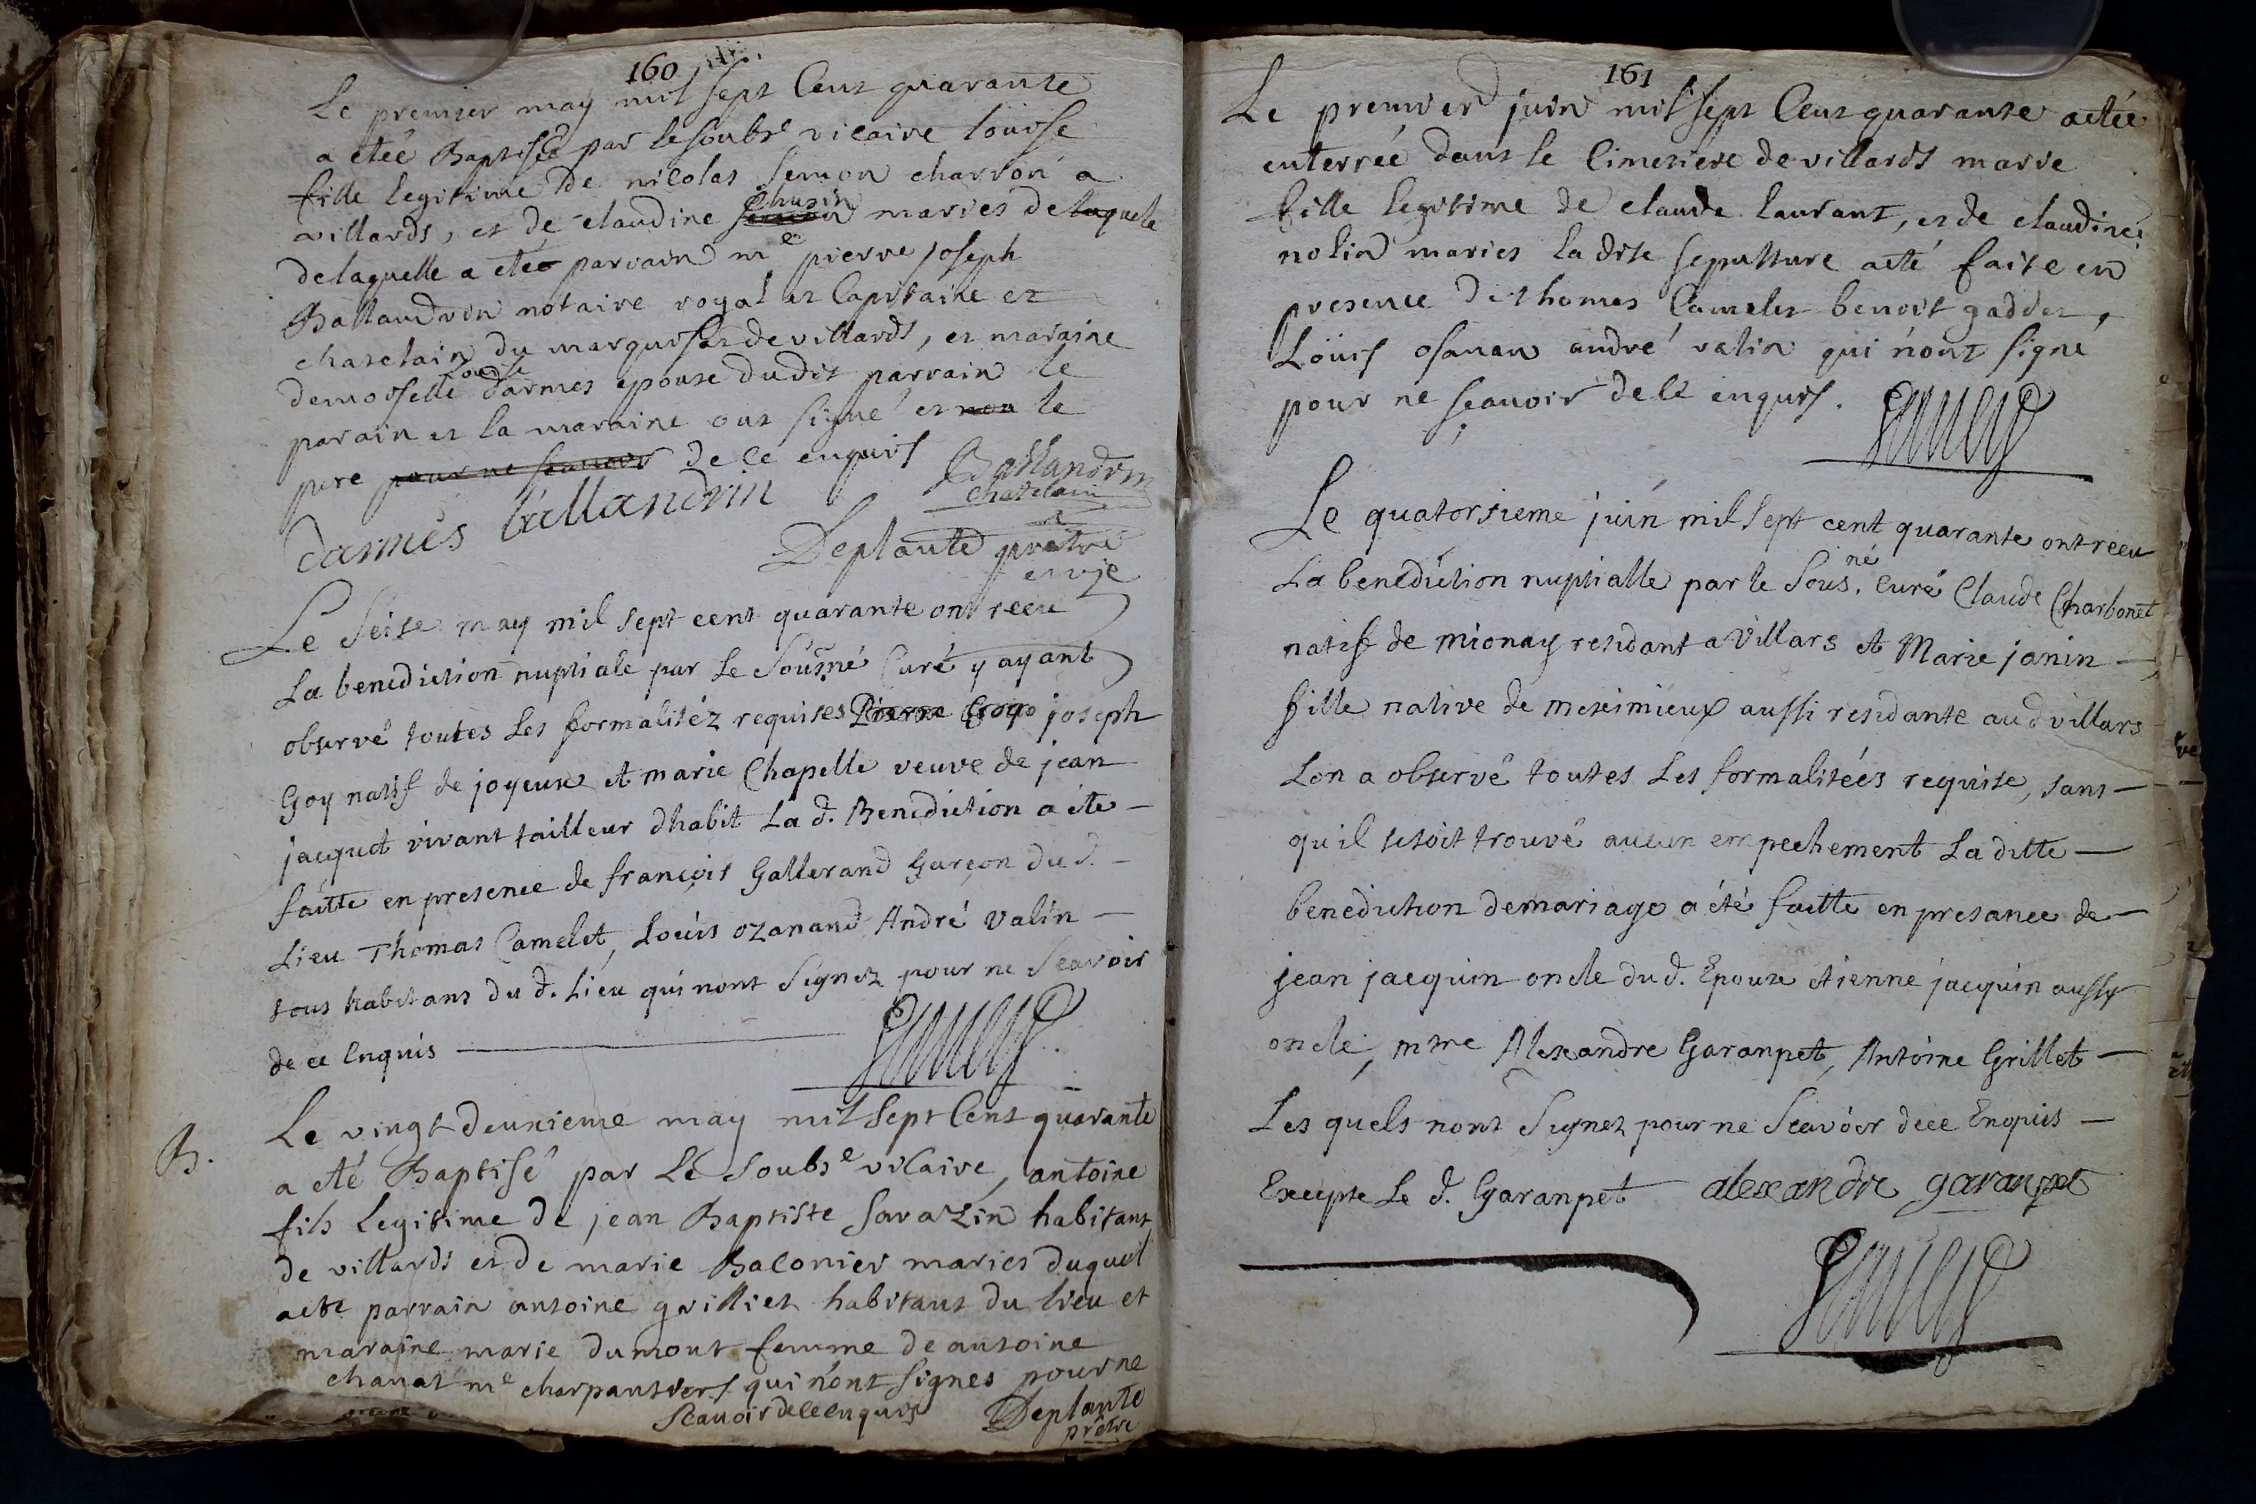 160
Le premier may mil sept Cent quarante
a etée Baptisée par le soubs.e vicaire Loüise
fille legitime de nicolas semon charron a
villards, et de claudine semon Chusin mariés de laquele
delaquelle a etée parrain m.e pierre joseph
Ballandrin notaire royal et Capitaine et
chatelain du marquisat de villards, et maraine
demoiselle Loüise darmes epouse dudit parrain le
parain et la maraine ont signé et non le
pere pour ne scauoir de ce enquis
Ballandrin
chatelain
darmes Ballandrin
Deplante pretre
et vic
Le Seise may mil sept cent quarante ont receu
La benediction nuptiale par Le Sousné Curé y ayant
observé toutes Les formalitéz requises Pierre Goyo joseph
Goy natif de joyeux et marie Chapelle veuve de jean
jacquet vivant tailleur dhabit La d. Benediction a éte —
faitte en presence de françois Gallerand Garçon du d. —
Lieu Thomas Camelet, Loüis ozanand André Valin —
tous habitans du d. Lieu qui nont Signez pour ne Scavoir
de ce Enquis
B.
Le vingt deuxieme may mil sept Cent quarante
a eté Baptisé par Le Soubs.e vicaire, antoine
fils legitime de jean Baptiste Sarazin habitant
de villards et de marie Baconier mariés duquel
a ete parrain antoine grilliet habitant du lieu et
maraine marie dumont femme de antoine
chanat m.e charpantiers qui n'ont signés pour ne
Scauoir de ce enquis
Deplante
prêtre
161
Le premier juin mil sept Cent quarante a etée
enterrée dans le Cimetiere de villards marie
fille legitime de claude laurant, et de claudine
nolin mariés la dite sepulture a eté faite en
presence de thomas Camelet benoit gaddet,
Loüis osanan andré valin qui n'ont signe
pour ne sçauoir de ce enquis.
Le quatorsieme juin mil sept cent quarante ont receu
La benediction nuptialle par le Sous.né Curé Claude Charbonet
natif de mionay residant a Villars et Marie janin —
fille native de meximieux aussi residante aud villars
Lon a observé toutes Les formalitéés requise, sans —
quil se soit trouvé aucun empechement La ditte —
benediction demariage a été faitte en presance de —
jean jacquin oncle du d. Epoux etienne jacquin aussy
oncle, mme Alexandre Garanpet, Antoine Grillet —
Les quels nont Signez pour ne Scavoir dece Enquis —
Excepte Le d. Garanpet alexandre garanpet